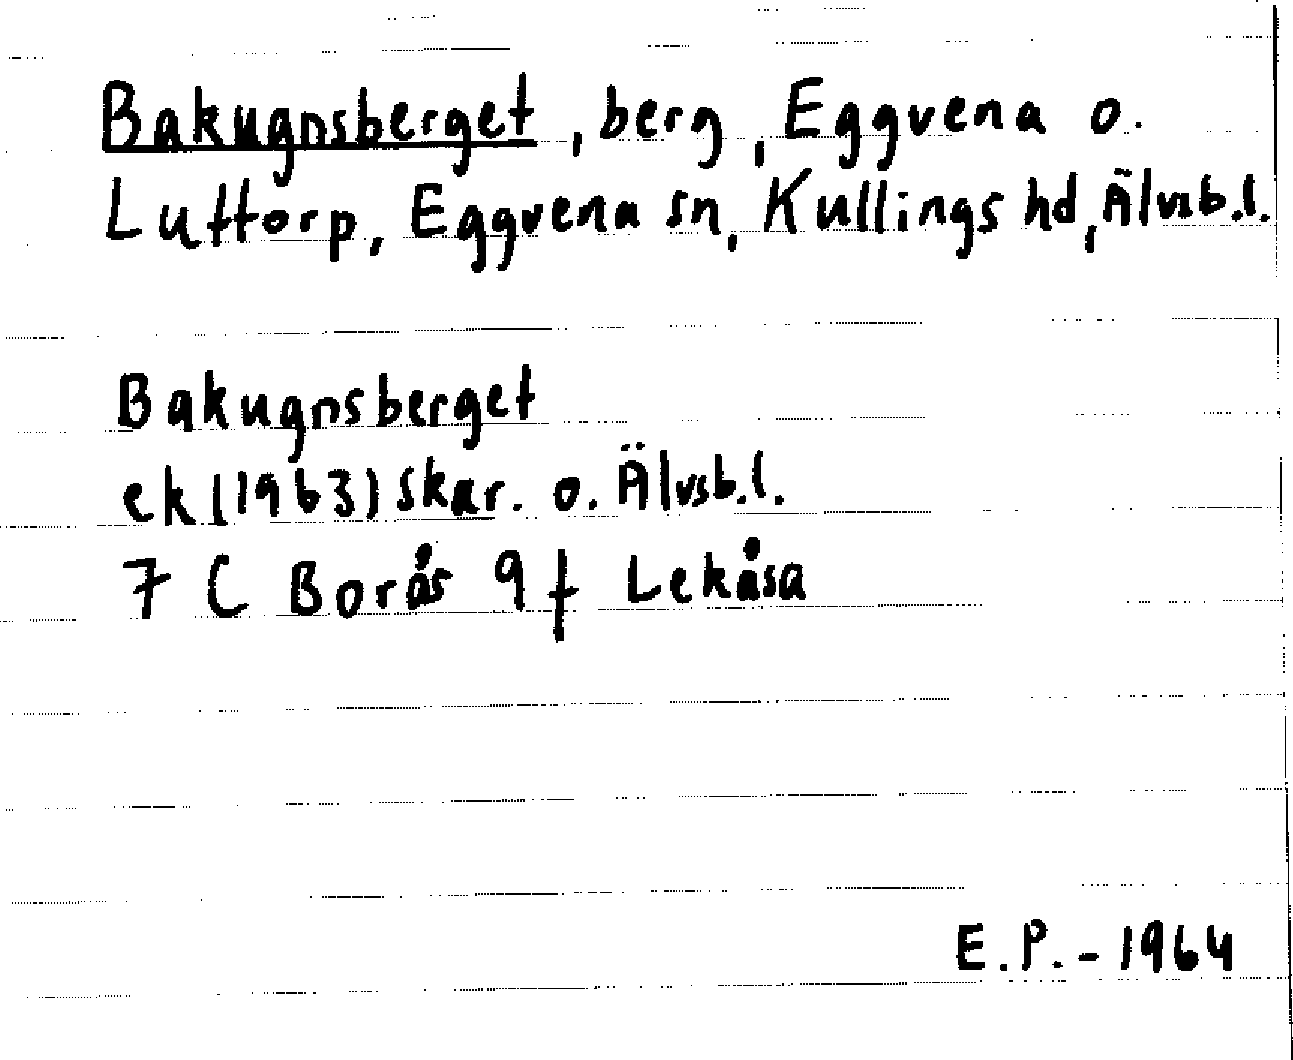 Bakugnsberget, berg, Eggvena o.
Luttorp, Eggvena sn, Kullings hd, Älvsb.l.
Bakugnsberget
ek (1963) Skar. o. Älvsb.l.
7 C Borås 9 f Lekåsa
E.P. - 1964